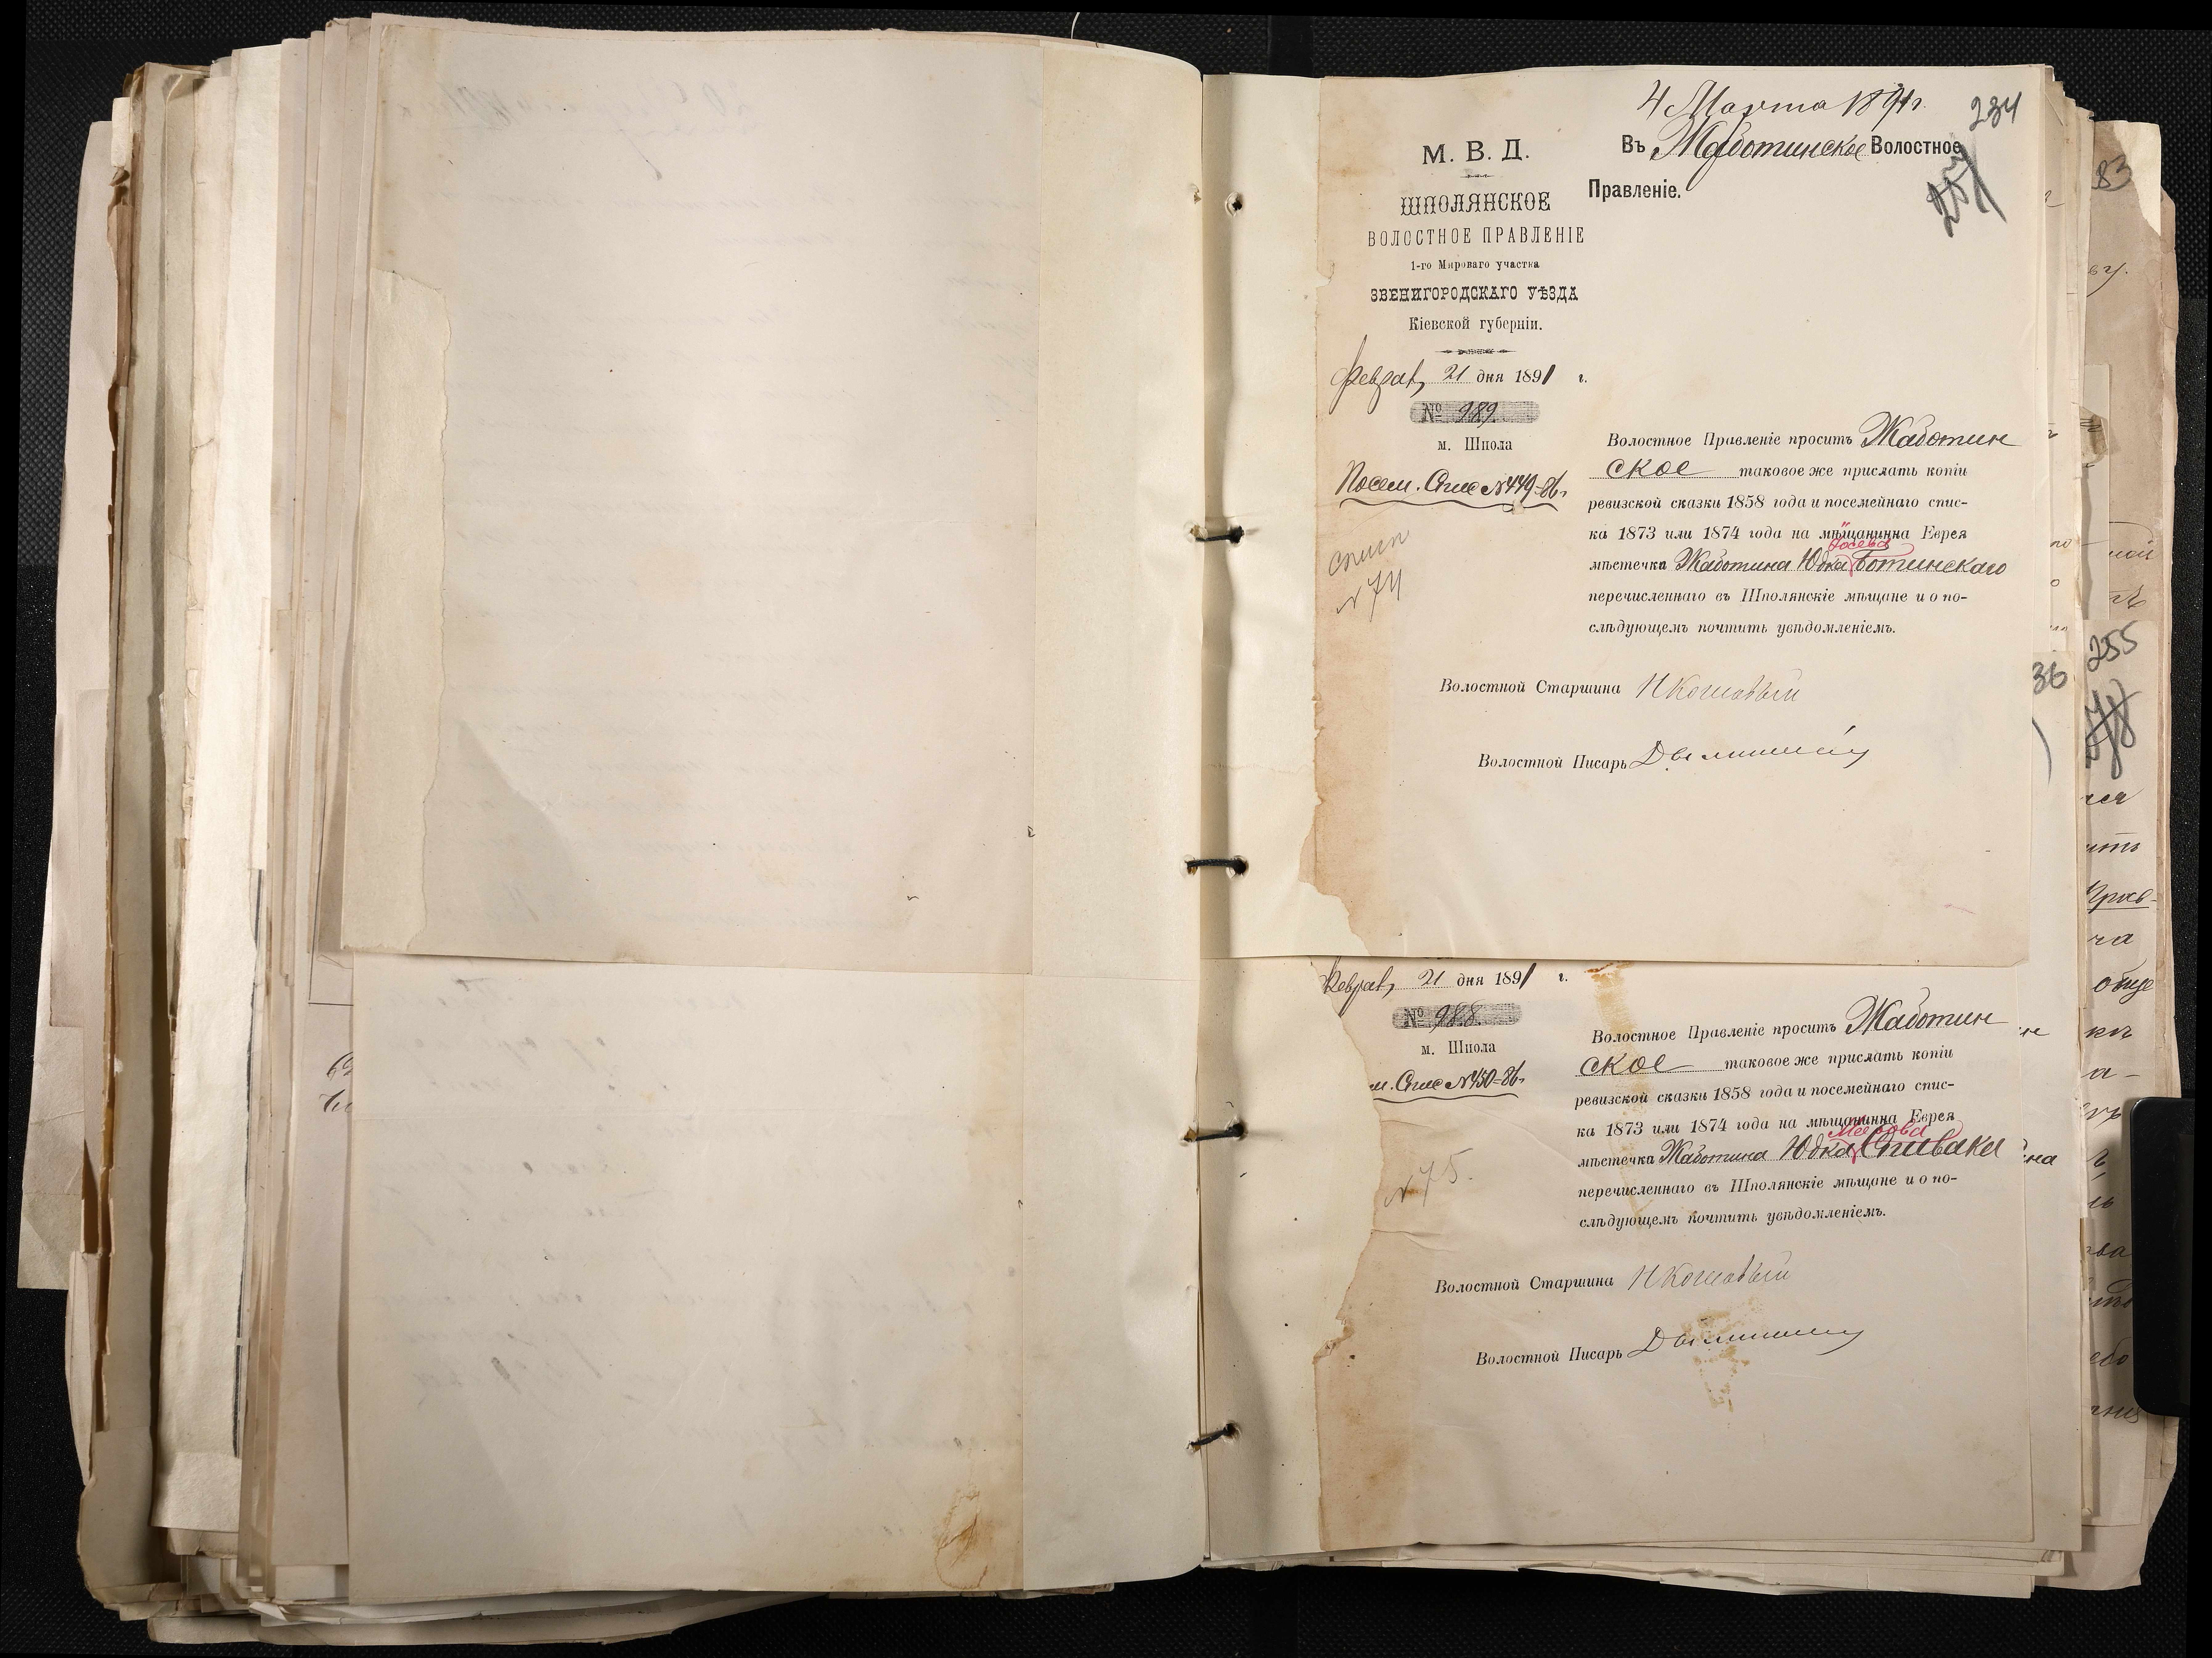 4 Марта 1891 г.
234
М. В. Д.
Въ Жаботинское Волостное
Правленіе.
ШПОЛЯНСКОЕ
ВОЛОСТНОЕ ПРАВЛЕНІЕ
1-го Мироваго участка
ЗВЕНИГОРОДСКАГО УѢЗДА
Кіевской губерніи.
Феврал, 21 дня 1891 г.
№ 989.
м. Шпола
Посем. Спис № 449-86 г
спис
№ 74
Волостное Правленіе проситъ Жаботин
ское таковое же прислать копіи
ревизской сказки 1858 года и посемейнаго спис-
ка 1873 или 1874 года на мѣщанинна Еврея
Іосева
мѣстечка Жаботина Юдка Ботинскаго
перечисленнаго въ Шполянскіе мѣщане и о по-
слѣдующемъ почтить увѣдомленіемъ.
Волостной Старшина Н Кошовый
Волостной Писарь
Феврал, 21 дня 1891 г.
№ 988.
м. Шпола
м. Спис № 450-86 г
№ 75.
Волостное Правленіе проситъ Жаботин
ское таковое же прислать копіи
ревизской сказки 1858 года и посемейнаго спис-
ка 1873 или 1874 года на мѣщанинна Еврея
Меерова
мѣстечка Жаботина Юдка Спивака
перечисленнаго въ Шполянскіе мѣщане и о по-
слѣдующемъ почтить увѣдомленіемъ.
Волостной Старшина Н Кошовый
Волостной Писарь
83
36
255
ной
общ
на